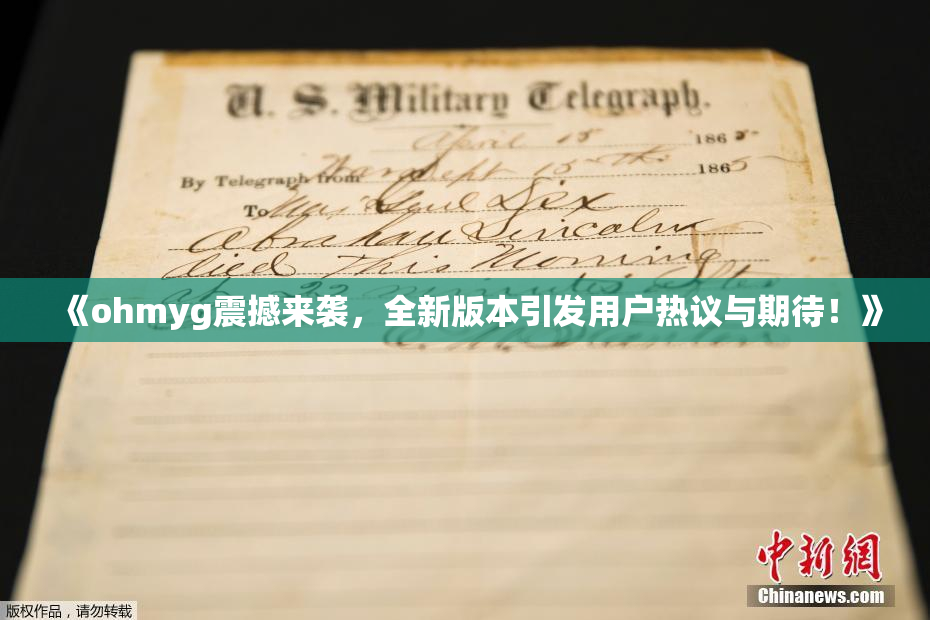 U. S. Military Telegraph.
April 15 1865.
By Telegraph from War Dept 15th 1865
To Maj Genl Dix
Abraham Lincoln
died This Morning
22 minutes after
《ohmyg震撼来袭，全新版本引发用户热议与期待！》
中新网
Chinanews.com
版权作品，请勿转载